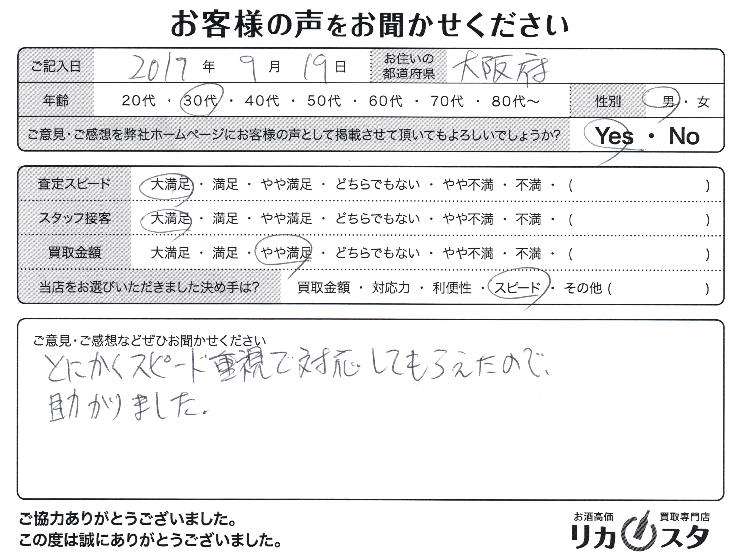 お客様の声をお聞かせください
ご記入日 2017 年 9 月 19 日 お住いの都道府県 大阪府
年齢 20代 ・ 30代 ・ 40代 ・ 50代 ・ 60代 ・ 70代 ・ 80代〜 性別 男 ・ 女
ご意見・ご感想を弊社ホームページにお客様の声として掲載させて頂いてもよろしいでしょうか? Yes ・ No
査定スピード 大満足 ・ 満足 ・ やや満足 ・ どちらでもない ・ やや不満 ・ 不満 ・ ( )
スタッフ接客 大満足 ・ 満足 ・ やや満足 ・ どちらでもない ・ やや不満 ・ 不満 ・ ( )
買取金額 大満足 ・ 満足 ・ やや満足 ・ どちらでもない ・ やや不満 ・ 不満 ・ ( )
当店をお選びいただきました決め手は? 買取金額 ・ 対応力 ・ 利便性 ・ スピード ・ その他 ( )
ご意見・ご感想などぜひお聞かせください
とにかくスピード重視で対応してもらえたので、
助かりました。
ご協力ありがとうございました。
この度は誠にありがとうございました。
お酒高価 買取専門店
リカスタ